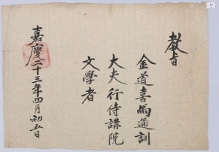 敎旨
金道喜為通訓
大夫行侍講院
文學者
嘉慶二十三年四月初五日